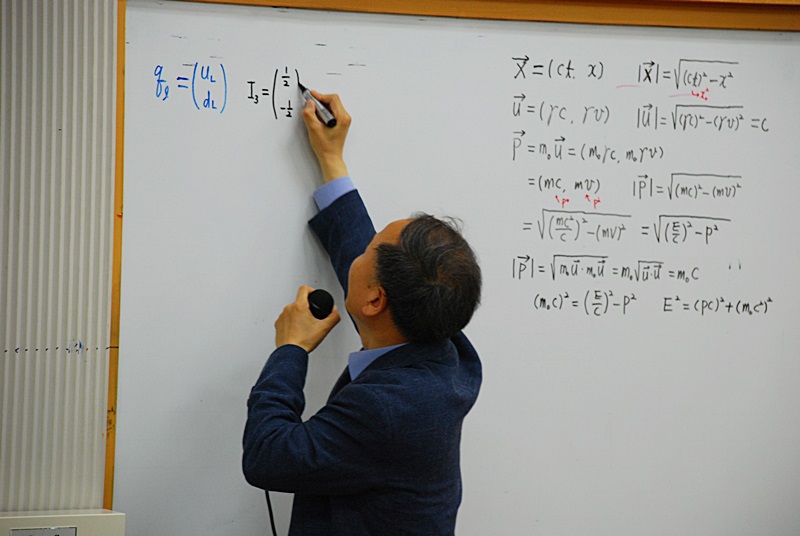 q_l = (u_L d_L) I_3 = (1/2 -1/2)
X⃗ = (ct, x) |X⃗| = √((ct)² - x²)
u⃗ = (γc, γv) |u⃗| = √((γc)² - (γv)²) = c
P⃗ = m₀u⃗ = (m₀γc, m₀γv)
= (mc, mv) |P⃗| = √((mc)² - (mv)²)
= √((mc²/c)² - (mv)²) = √((E/c)² - p²)
|P⃗| = √(m₀u⃗·m₀u⃗) = m₀√(u⃗·u⃗) = m₀c
(m₀c)² = (E/c)² - p² E² = (pc)² + (m₀c²)²